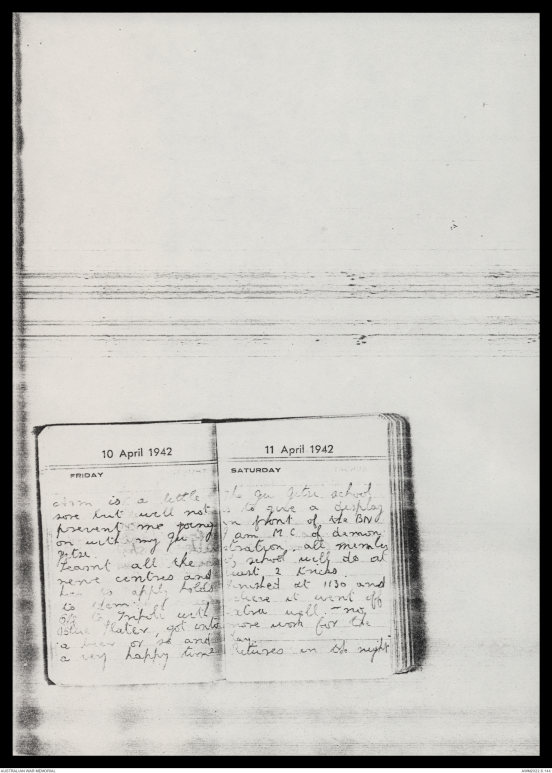 10 April 1942
FRIDAY
arm is a little
sore but will not
prevent me going
on with my gu
gitsu.
Learnt all the
nerve centres and
how to apply holds
to them.
off to Tripoli with
Slater, got onto
a beer or so and
a very happy time
11 April 1942
SATURDAY
The gu gitsu school
is to give a display
in front of the BN
I am M C of demon
stration, all members
of school will do at
least 2 tricks
finished at 1130 and
where it went off
extra well. - no
more work for the
day.
Pictures in the night
AUSTRALIAN WAR MEMORIAL